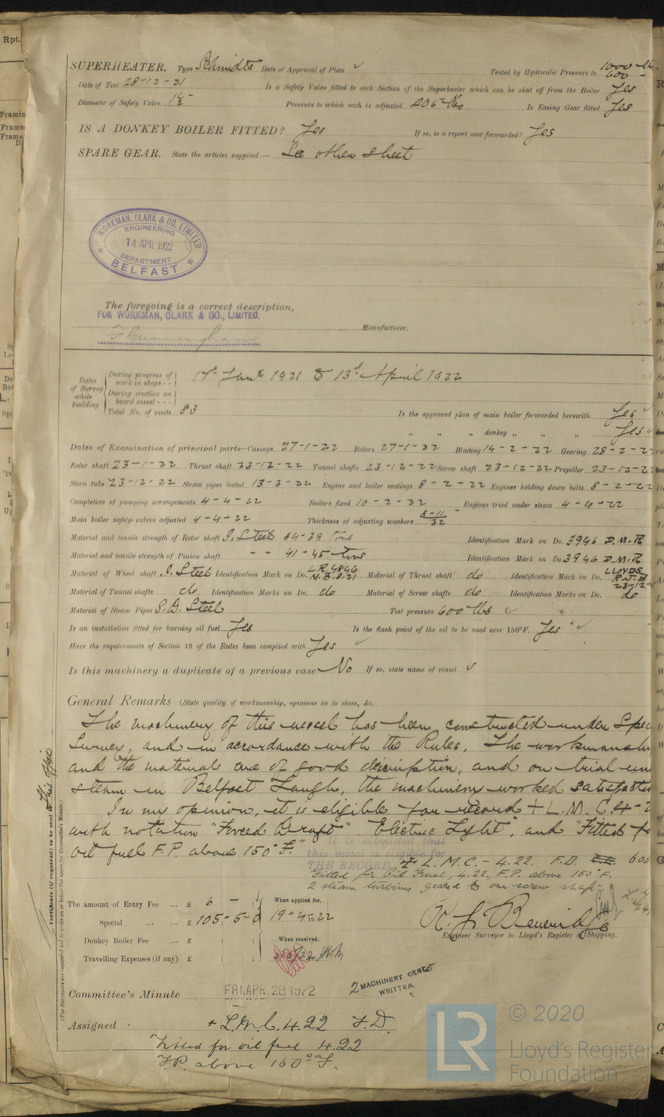 SUPERHEATER. Type Schmidt Date of Approval of Plan ✓ Tested by Hydraulic Pressure to
Date of Test 28-12-21 Is a Safety Valve fitted to each Section of the Superheater which can be shut off from the Boiler Yes
Diameter of Safety Valve 1½" Pressure to which each is adjusted 205 lbs Is Easing Gear fitted Yes
IS A DONKEY BOILER FITTED? Yes If so, is a report now forwarded? Yes
SPARE GEAR. State the articles supplied:— See other sheet
WORKMAN, CLARK & CO., LIMITED
ENGINEERING
14 APR. 1922
DEPARTMENT
BELFAST
The foregoing is a correct description,
FOR WORKMAN, CLARK & CO., LIMITED.
F Cunningham Manufacturer.
Dates of Survey while building
During progress of work in shops - -
During erection on board vessel - - -
17th Jany 1921 to 13th April 1922
Total No. of visits 83
Is the approved plan of main boiler forwarded herewith Yes ✓
" " " donkey " " " Yes ✓
Dates of Examination of principal parts—Casings 27-1-22 Rotors 27-1-22 Blading 14-2-22 Gearing 28-2-2
Rotor shaft 23-1-22 Thrust shaft 23-12-22 Tunnel shafts 23-12-22 Screw shaft 23-12-22 Propeller 23-12-2
Stern tube 23-12-22 Steam pipes tested 13-3-22 Engine and boiler seatings 8-2-22 Engines holding down bolts 8-2-22
Completion of pumping arrangements 4-4-22 Boilers fixed 10-2-22 Engines tried under steam 4-4-22
Main boiler safety valves adjusted 4-4-22 Thickness of adjusting washers
Material and tensile strength of Rotor shaft I. Steel 34-39 Tons Identification Mark on Do. 3946 D.M.R
Material and tensile strength of Pinion shaft " " 41-45 tons Identification Mark on Do. 3946 D.M.R
Material of Wheel shaft I. Steel Identification Mark on Do. Material of Thrust shaft do Identification Mark on Do. LLOYDS
Material of Tunnel shafts do Identification Marks on Do. do Material of Screw shafts do Identification Marks on Do. do
Material of Steam Pipes S.D. Steel Test pressure 600 lbs ✓
Is an installation fitted for burning oil fuel Yes Is the flash point of the oil to be used over 150°F. Yes ✓
Have the requirements of Section 49 of the Rules been complied with Yes
Is this machinery a duplicate of a previous case No If so, state name of vessel ✓
General Remarks (State quality of workmanship, opinions as to class, &c.
The machinery of this vessel has been constructed under Spec
Survey, and in accordance with the Rules. The workmanshi
and the materials are of good description, and on trial un
steam in Belfast Lough, the machinery worked satisfactor
In my opinion, it is eligible for record + L.M.C. 4-2
with notation "Forced Draft" "Electric Light", and "Fitted fo
oil fuel F.P. above 150°F."
It is submitted that
this vessel is eligible for
THE RECORD. + L.M.C. - 4.22. F.D.
Fitted for Oil Fuel, 4.22, F.P. above 150°F.
2 steam turbines geared to one screw shaft
Certificate (if required) to be sent to This Office
(The Surveyors are requested not to write on or below the space for Committee's Minute.)
The amount of Entry Fee ... £ 6 : - : When applied for,
Special ... ... £ 105-5-0 19-4-22
Donkey Boiler Fee ... £ : : When received,
Travelling Expenses (if any) £ : :
Engineer Surveyor to Lloyd's Register of Shipping.
Committee's Minute FRI. APR. 28 1922
2 MACHINERY CERTS
WRITTEN.
Assigned + L.M.C. 4.22 F.D.
Fitted for oil fuel 4.22
F.P. above 150°F.
LR
© 2020
Lloyd's Register
Foundation